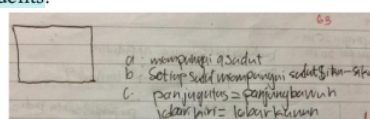 63
a. mempunyai 4 sudut
b. Setiap sudut mempunyai sudut siku-siku
c. panjang atas = panjang bawah
lebar kiri = lebar kanan